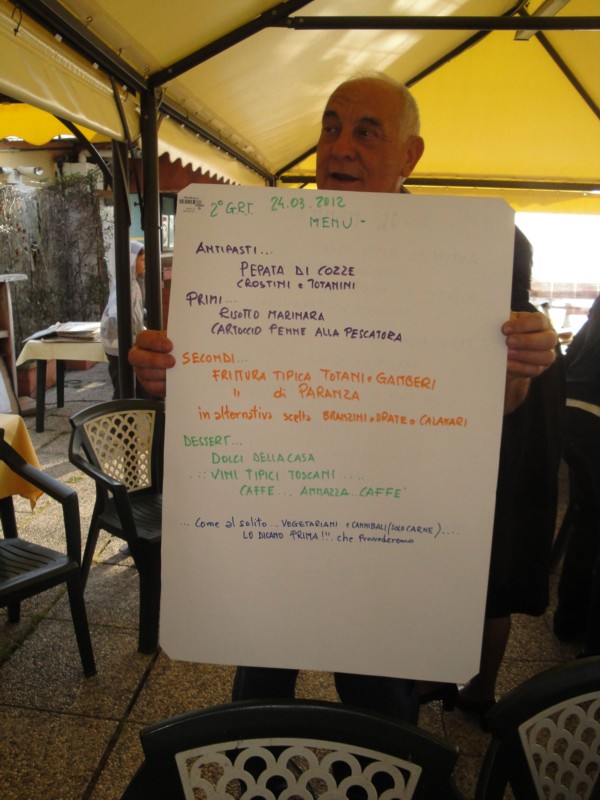 2° G.R.T. 24.03.2012
MENU -
ANTIPASTI...
PEPATA DI COZZE
CROSTINI e TOTANINI
PRIMI...
RISOTTO MARINARA
CARTOCCIO PENNE ALLA PESCATORA
SECONDI...
FRITTURA TIPICA TOTANI e GAMBERI
" di PARANZA
in alternativa scelta BRANZINI e ORATE e CALAMARI
DESSERT...
DOLCI DELLA CASA
..:: VINI TIPICI TOSCANI ....
CAFFE'... AMMAZZA..CAFFE'
... Come al solito... VEGETARIANI e CANNIBALI (SOLO CARNE)....
LO DICANO PRIMA!!".. che Provvederemo